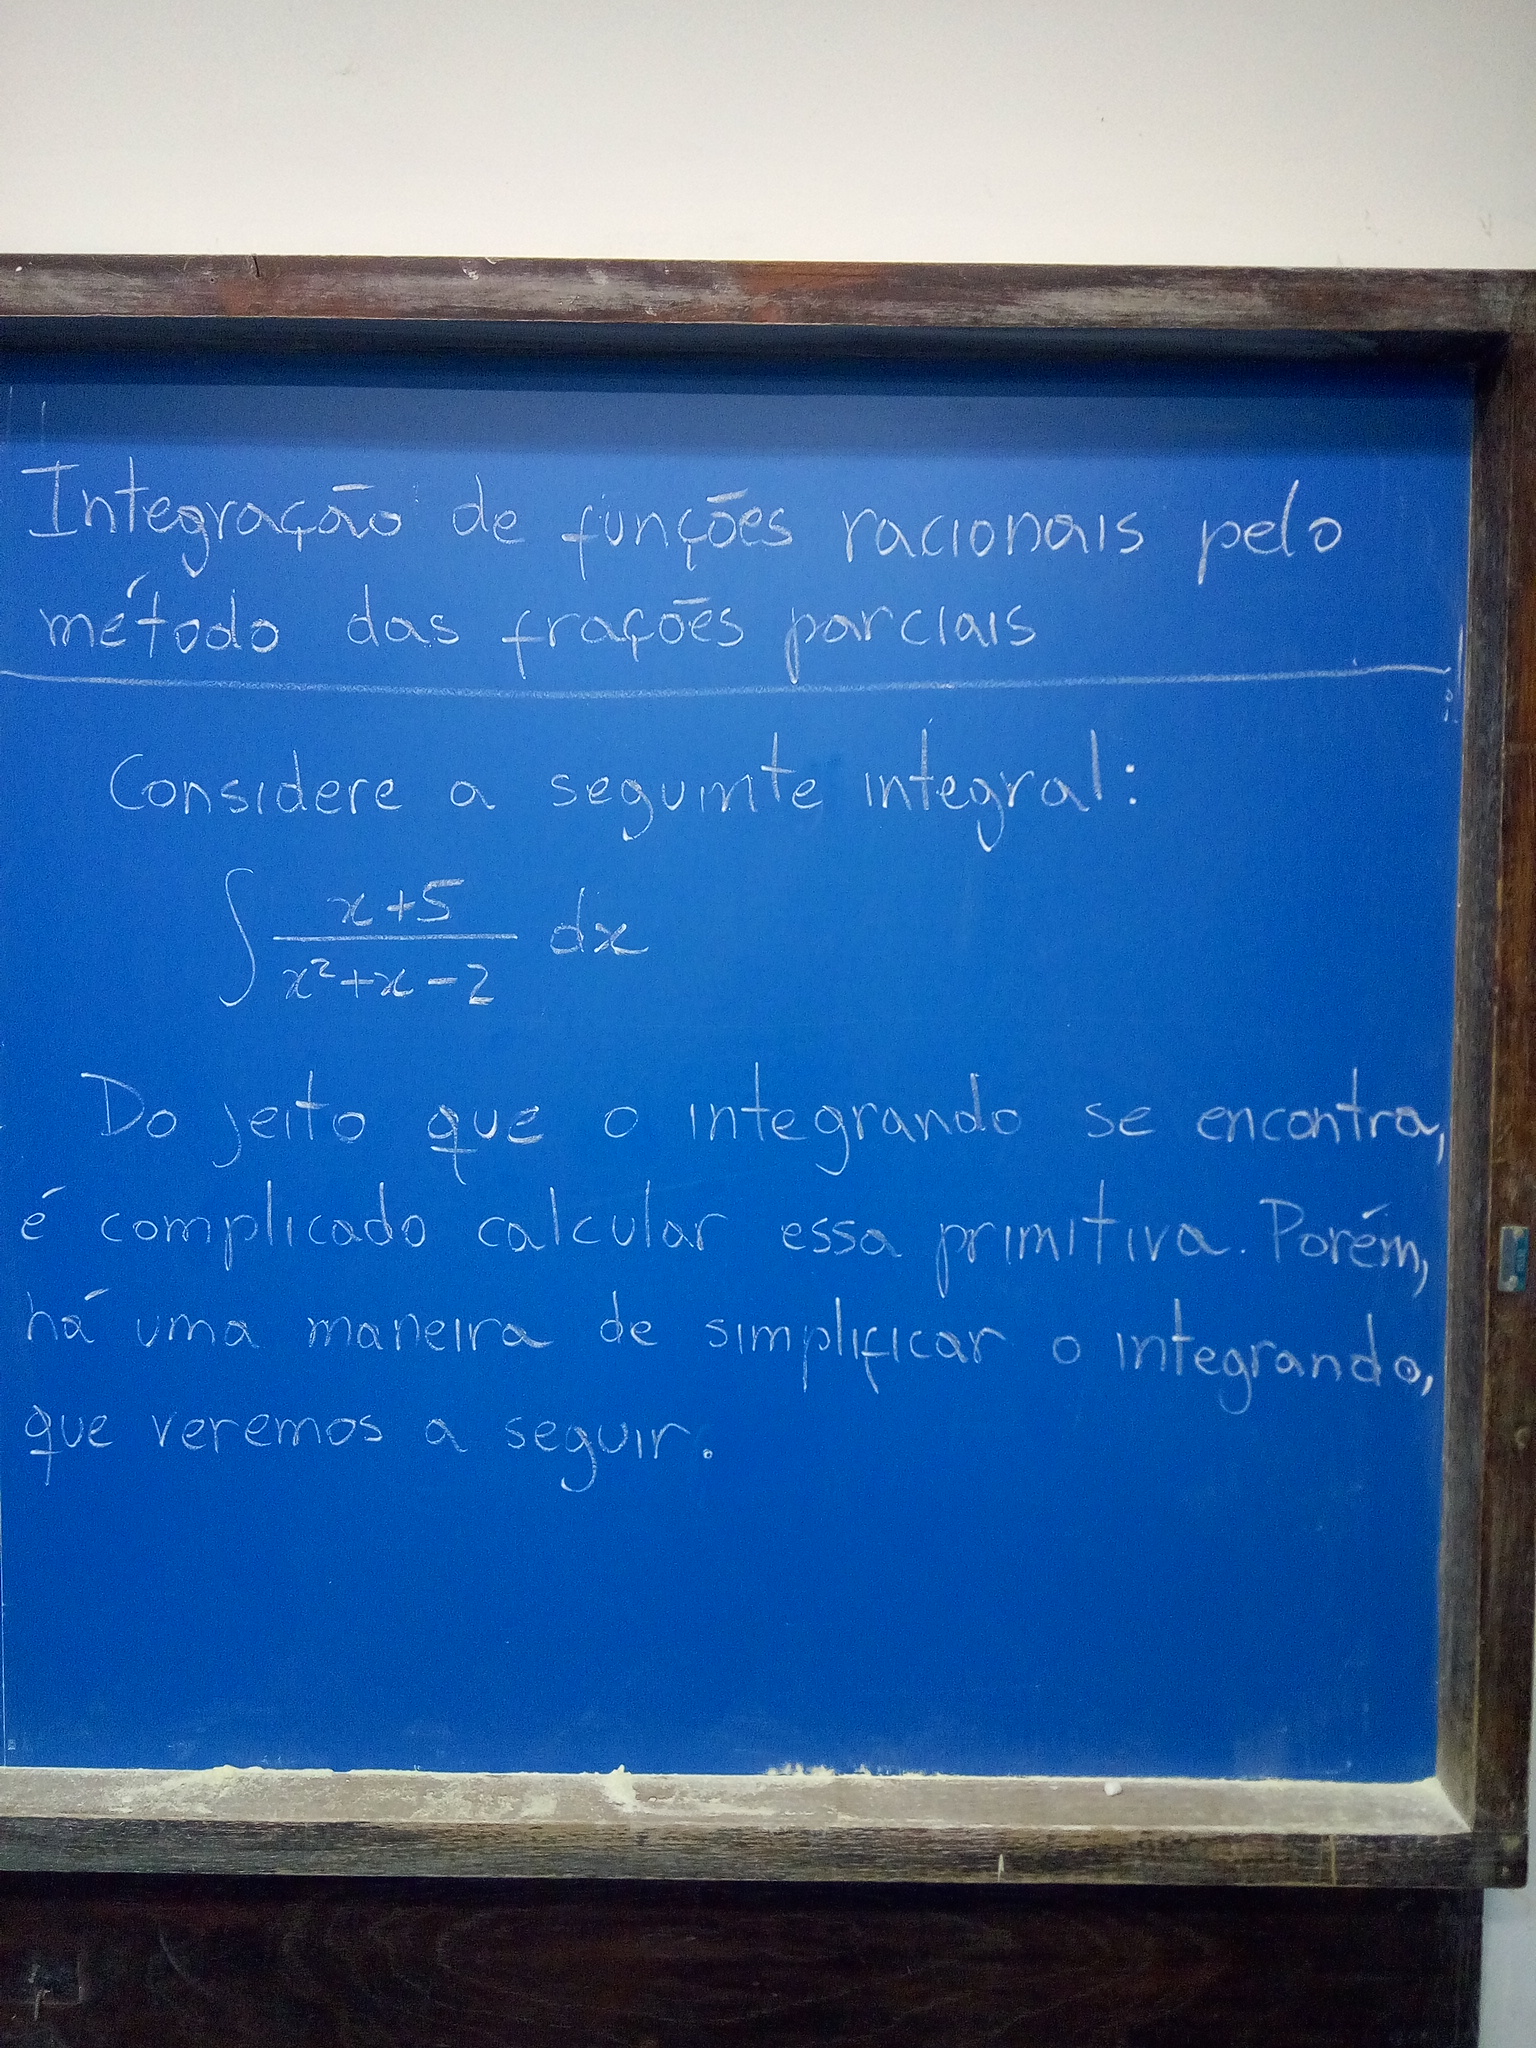 Integração de funções racionais pelo
método das frações parciais
Considere a seguinte integral:
∫ (x+5)/(x²+x-2) dx
Do jeito que o integrando se encontra,
é complicado calcular essa primitiva. Porém,
há uma maneira de simplificar o integrando,
que veremos a seguir.